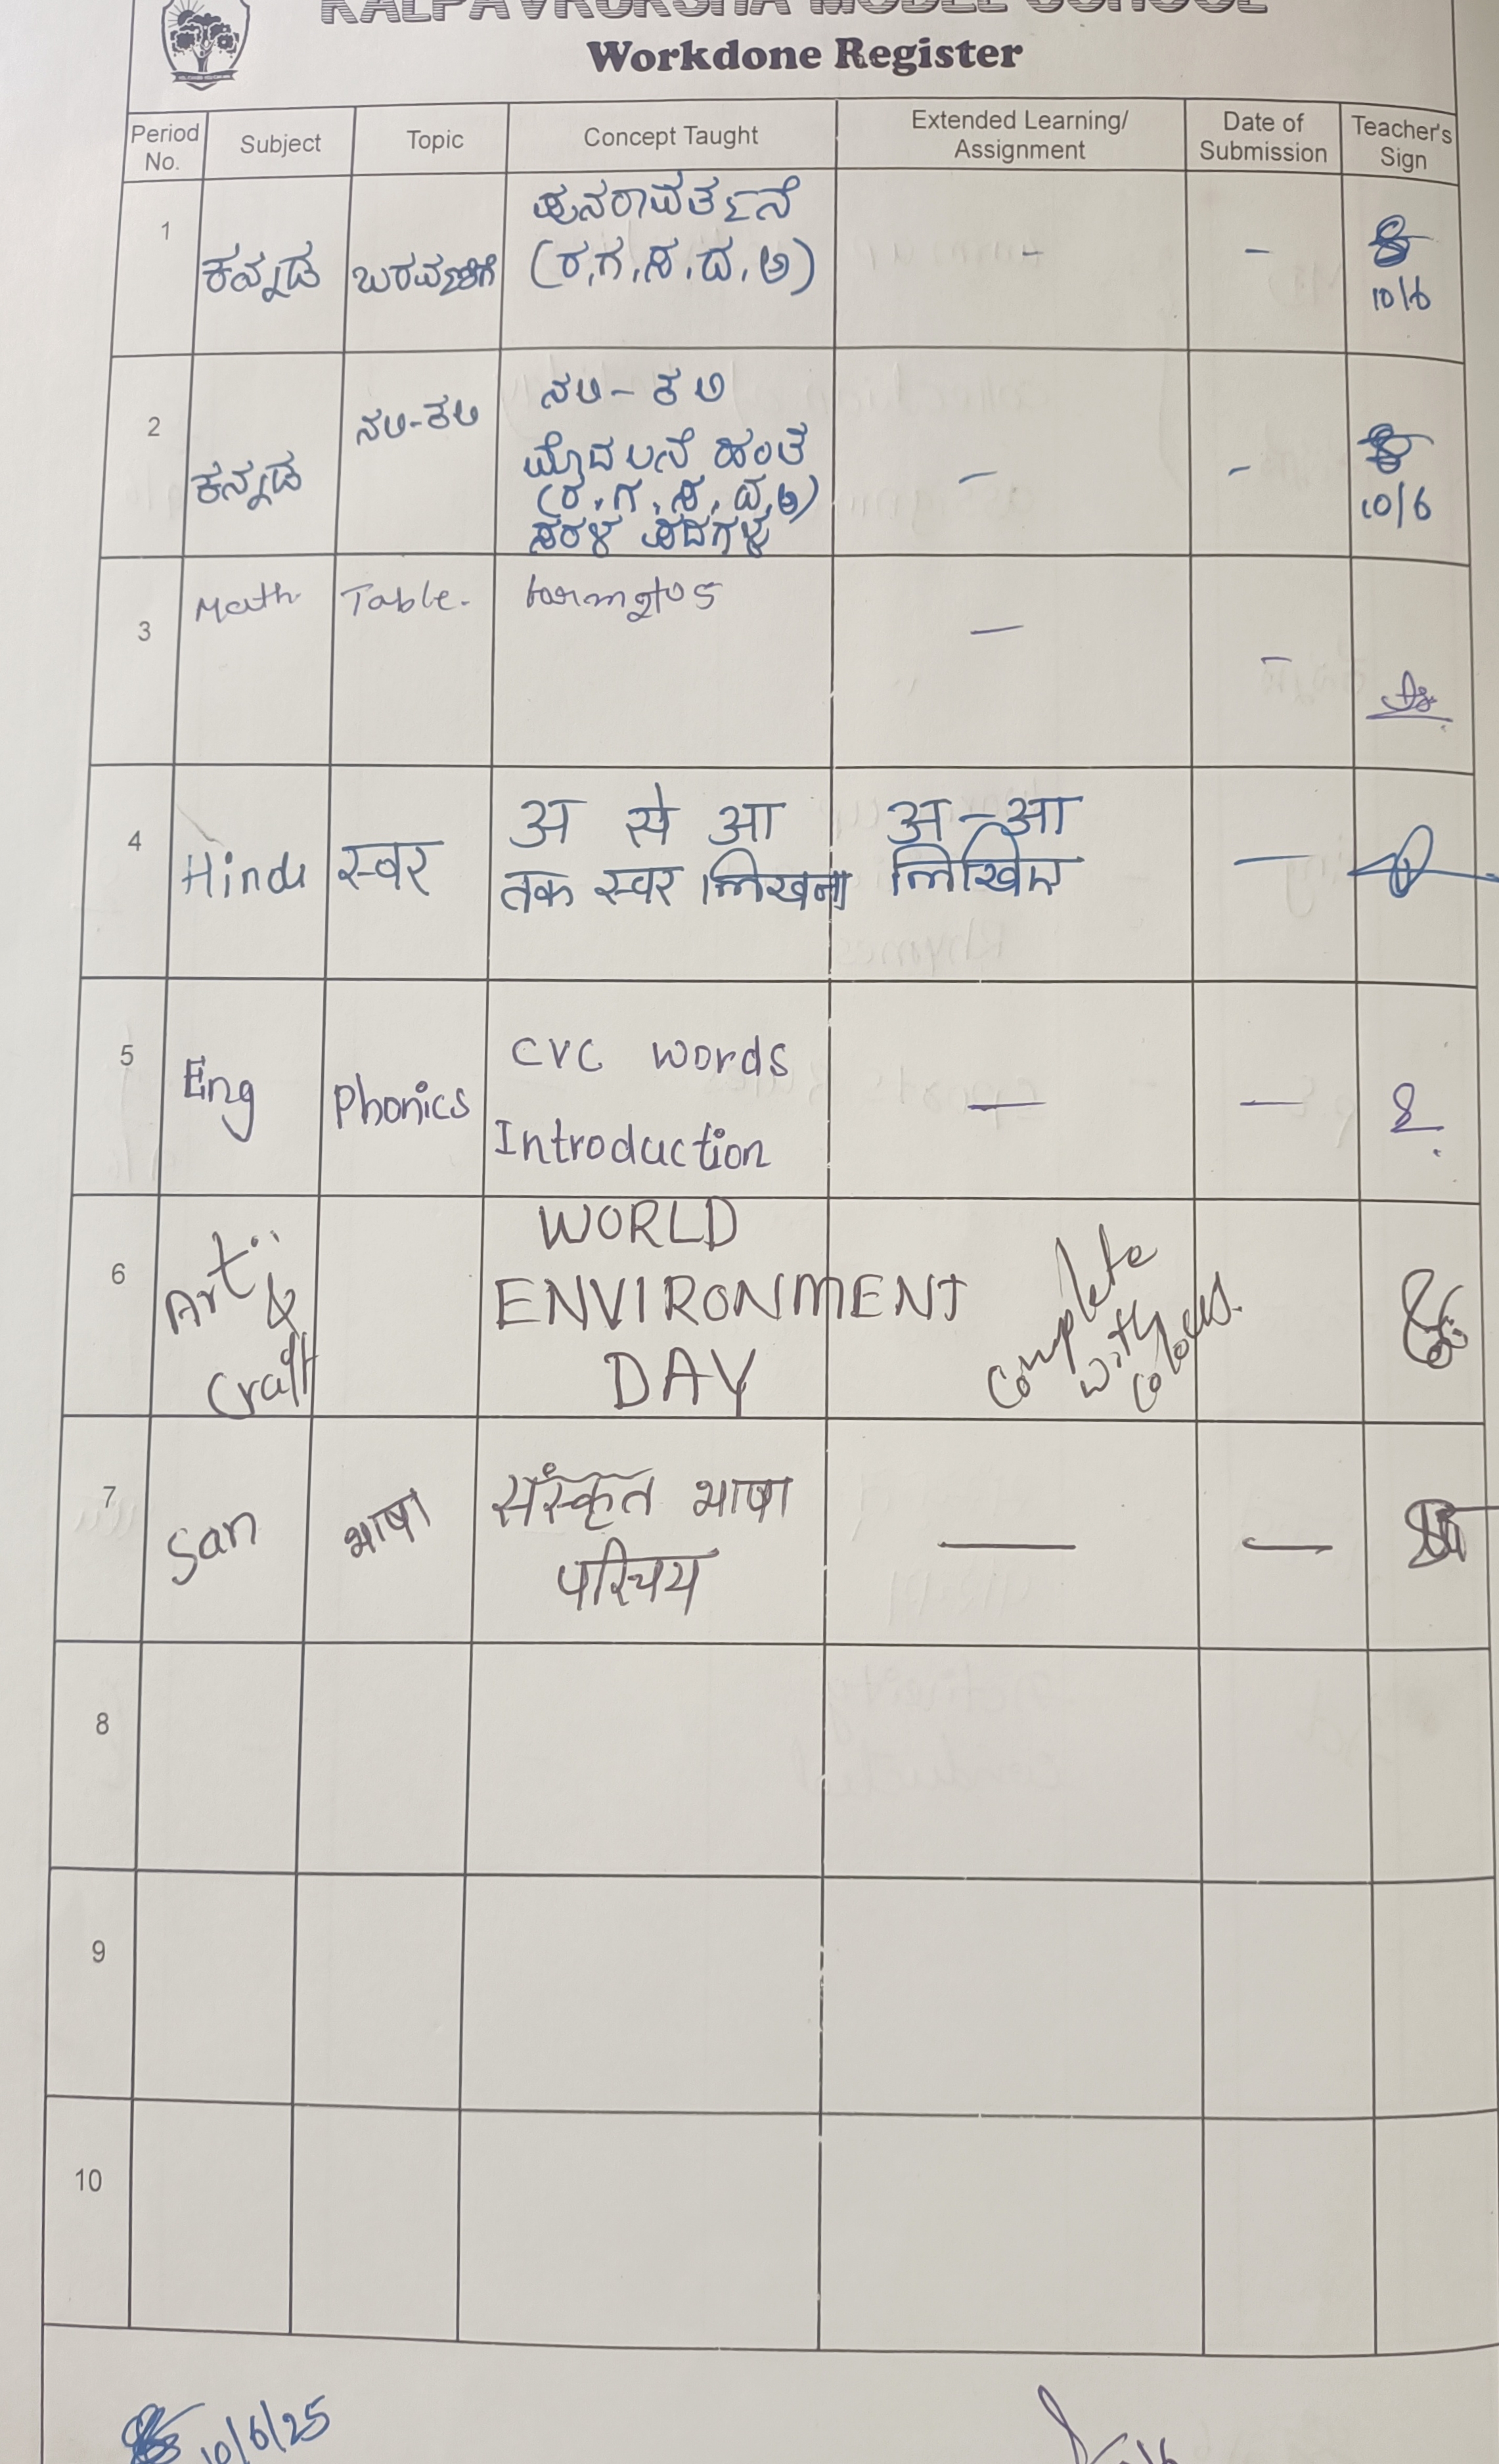 KALPAVRUKSHA MODEL SCHOOL
Workdone Register
Period No. Subject Topic Concept Taught Extended Learning/ Assignment Date of Submission Teacher's Sign
1 ಕನ್ನಡ ಬರವಣಿಗೆ ಪುನರಾವರ್ತನೆ - -
(ರ,ಗ,ಸ,ದ,ಅ)
10/6
2 ಕನ್ನಡ ನಲಿ-ಕಲಿ ನಲಿ-ಕಲಿ - -
ಮೊದಲನೆ ಹಂತ
(ರ,ಗ,ಸ,ದ,ಅ)
ಸರಳ ಪದಗಳು
10/6
3 Math Table. — –
4 Hindi स्वर अ से आ अ-आ —
तक स्वर लिखना लिखिए
5 Eng Phonics CVC words — —
Introduction
6 Art & Craft WORLD complete
ENVIRONMENT with
DAY colours.
7 San भाषा संस्कृत भाषा — —
परिचय
8
9
10
10/6/25